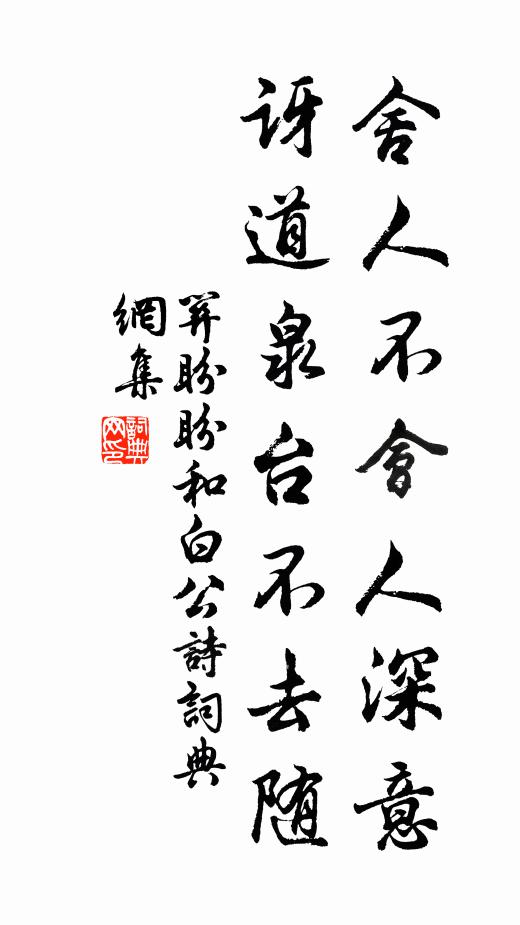 舍人不會人深意
讶道泉台不去随
関盼盼和白公詩詞典
網集
詞典
网印